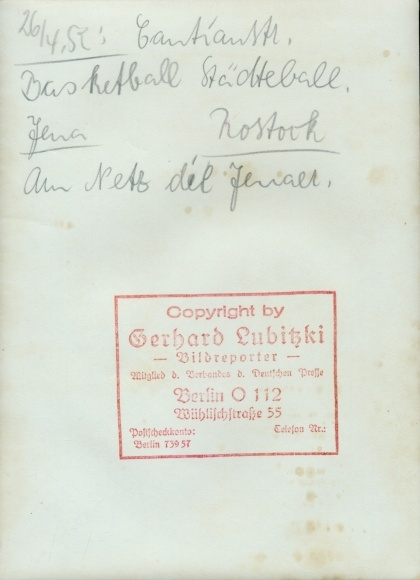 26/4.52: Cantianstr.
Basketball Städteball.
Jena Rostock
Am Netz die Jenaer.
Copyright by
Gerhard Lubitzki
— Bildreporter —
Mitglied d. Verbandes d. Deutschen Presse
Berlin O 112
Wühlischstraße 55
Postscheckkonto: Telefon Nr.:
Berlin 73957